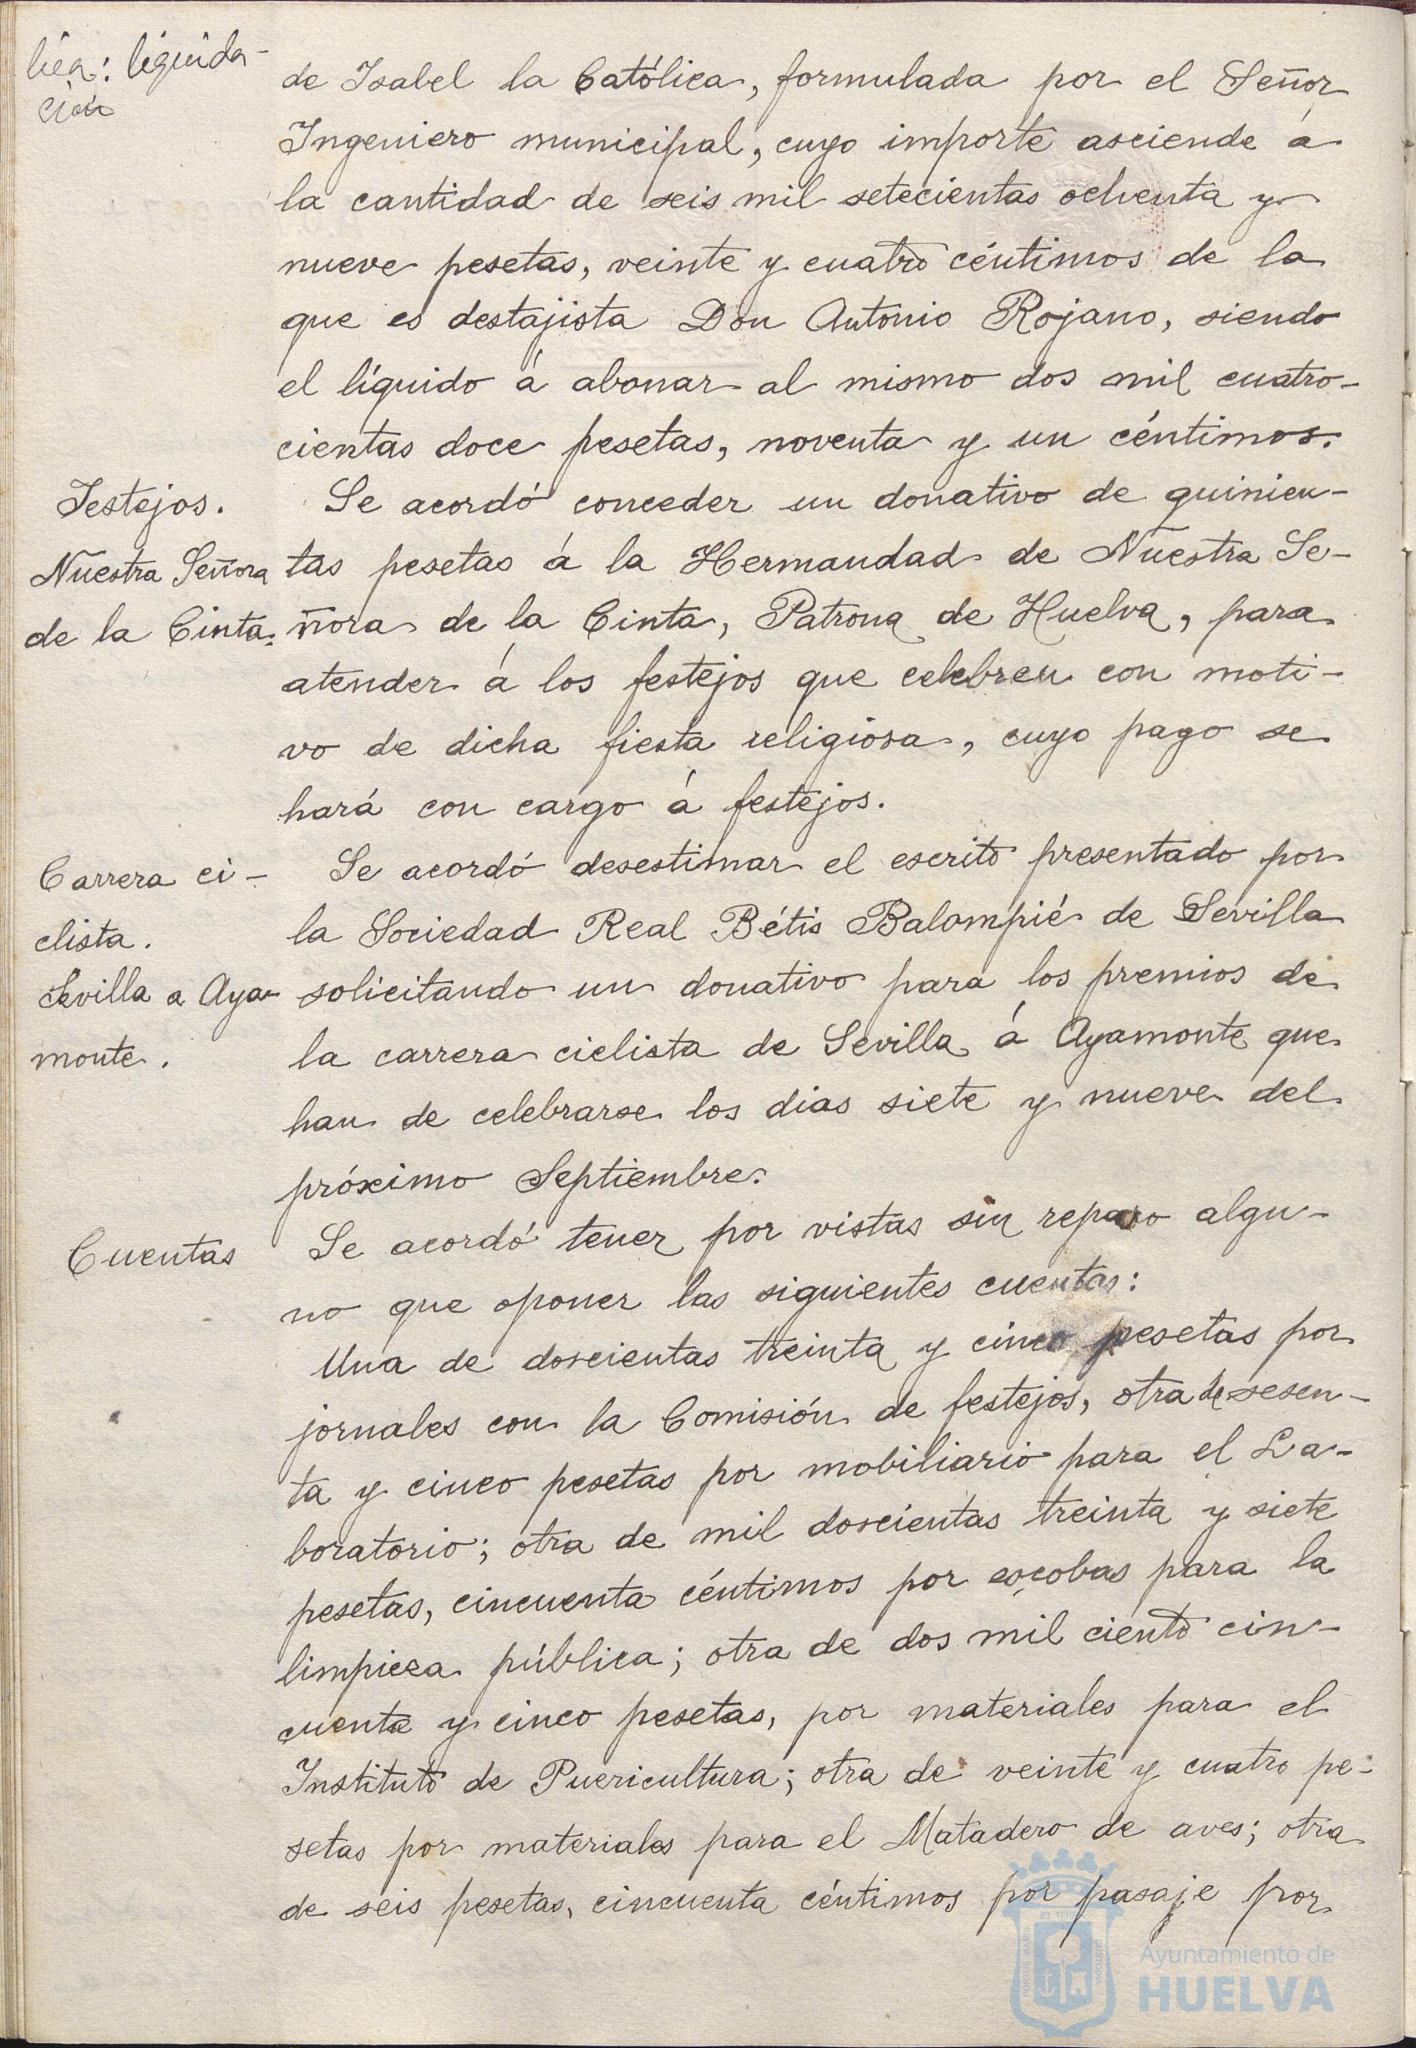 lica: liquida-
ción
de Isabel la Católica, formulada por el Señor
Ingeniero municipal, cuyo importe asciende á
la cantidad de seis mil setecientas ochenta y
nueve pesetas, veinte y cuatro céntimos de la
que es destajista Don Antonio Rojano, siendo
el líquido á abonar al mismo dos mil cuatro-
cientas doce pesetas, noventa y un céntimos.
Festejos.
Nuestra Señora
de la Cinta.
Se acordó conceder un donativo de quinien-
tas pesetas á la Hermandad de Nuestra Se-
ñora de la Cinta, Patrona de Huelva, para
atender á los festejos que celebren con moti-
vo de dicha fiesta religiosa, cuyo pago se
hará con cargo á festejos.
Carrera ci-
clista.
Sevilla a Aya-
monte.
Se acordó desestimar el escrito presentado por
la Sociedad Real Bétis Balompié de Sevilla
solicitando un donativo para los premios de
la carrera ciclista de Sevilla á Ayamonte que
han de celebrarse los dias siete y nueve del
próximo Septiembre.
Cuentas
Se acordó tener por vistas sin reparo algu-
no que oponer las siguientes cuentas:
Una de doscientas treinta y cinco pesetas por
jornales con la Comisión de festejos, otra de sesen-
ta y cinco pesetas por mobiliario para el La-
boratorio; otra de mil doscientas treinta y siete
pesetas, cincuenta céntimos por escobas para la
limpieza pública; otra de dos mil ciento cin-
cuenta y cinco pesetas, por materiales para el
Instituto de Puericultura; otra de veinte y cuatro pe-
setas por materiales para el Matadero de aves; otra
de seis pesetas, cincuenta céntimos por pasaje por
Ayuntamiento de
HUELVA